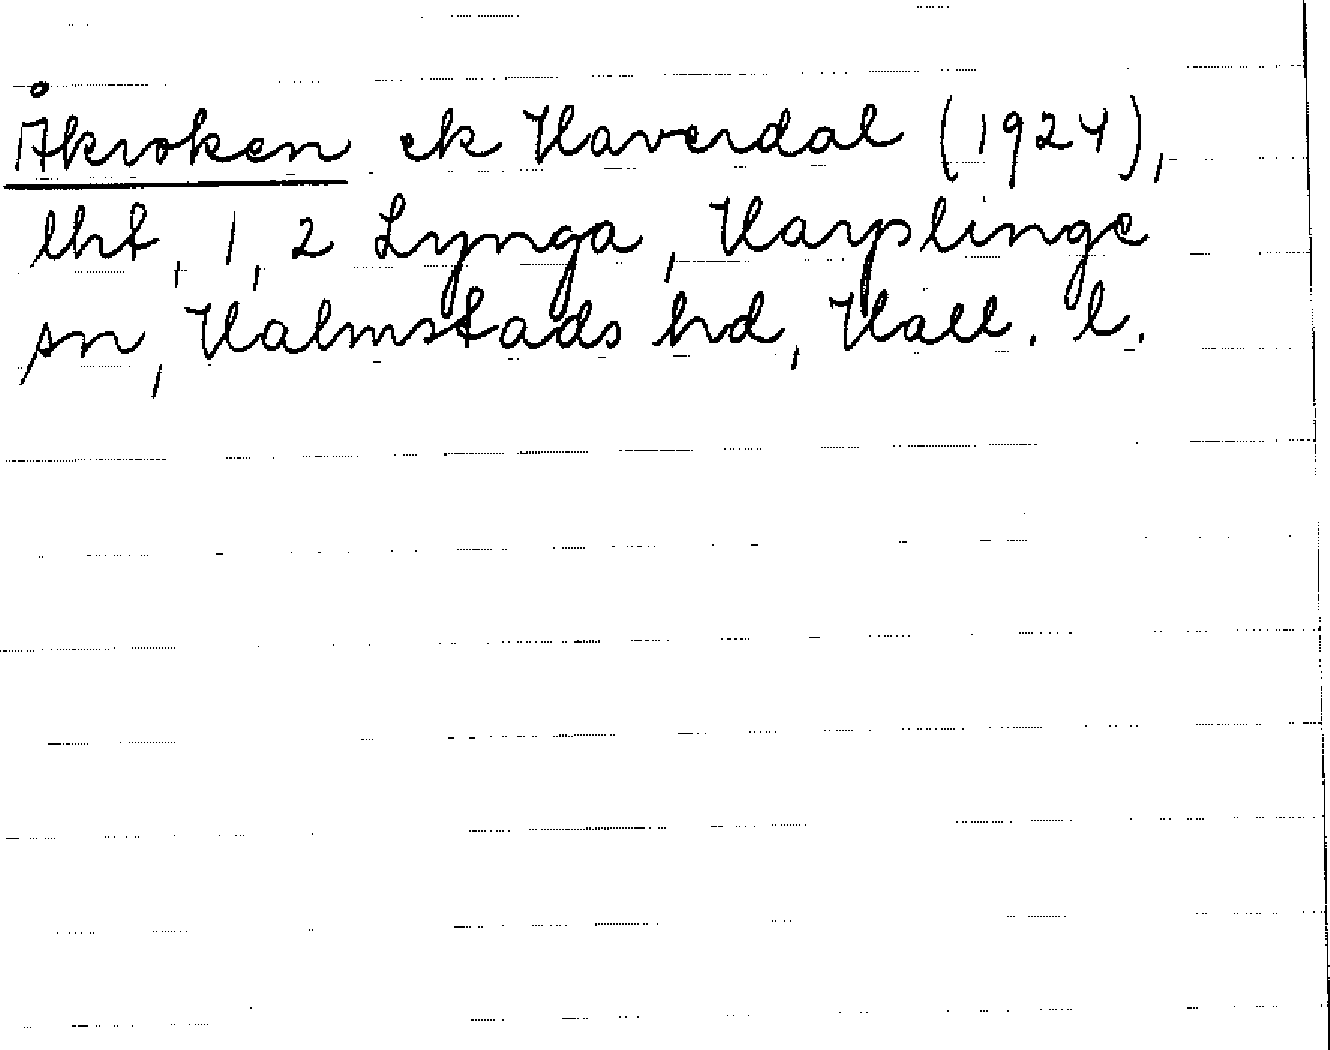 Åkroken ek Haverdal (1924),
lht, 1, 2 Lynga, Harplinge
sn, Halmstads hd, Hall. l.